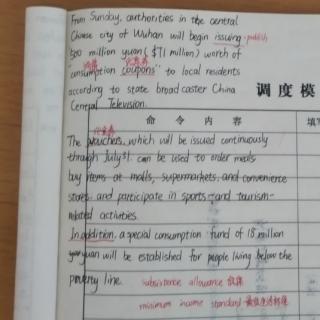 From Sunday, authorities in the central
Chinese city of Wuhan will begin issuing publish
500 million yuan ($71 million) worth of
消费 代金券
"consumption coupons" to local residents
according to state broadcaster China
Central Television.
调度模
命令内容
代金券
The vouchers, which will be issued continuously
through July 31. can be used to order meals
buy items at malls, supermarkets, and convenience
stores and participate in sports and tourism-
related activities.
In addition, a special consumption fund of 18 million
yuan will be established for people living below the
poverty line. subsistence allowance 低保
minimum income standard 最低生活标准